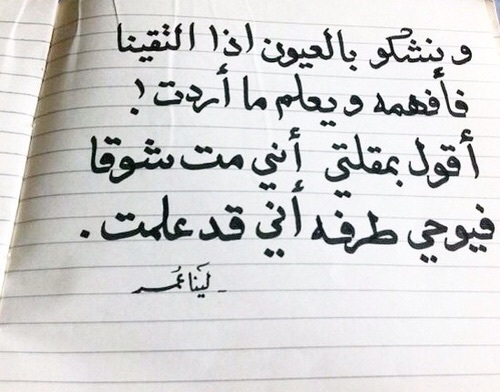 و نشكو بالعيون اذا التقينا
فأفهمه ويعلم ما أردت !
أقول بمقلتي أنني مت شوقا
فيوحي طرفه أني قد علمت .
- لينا عُمر